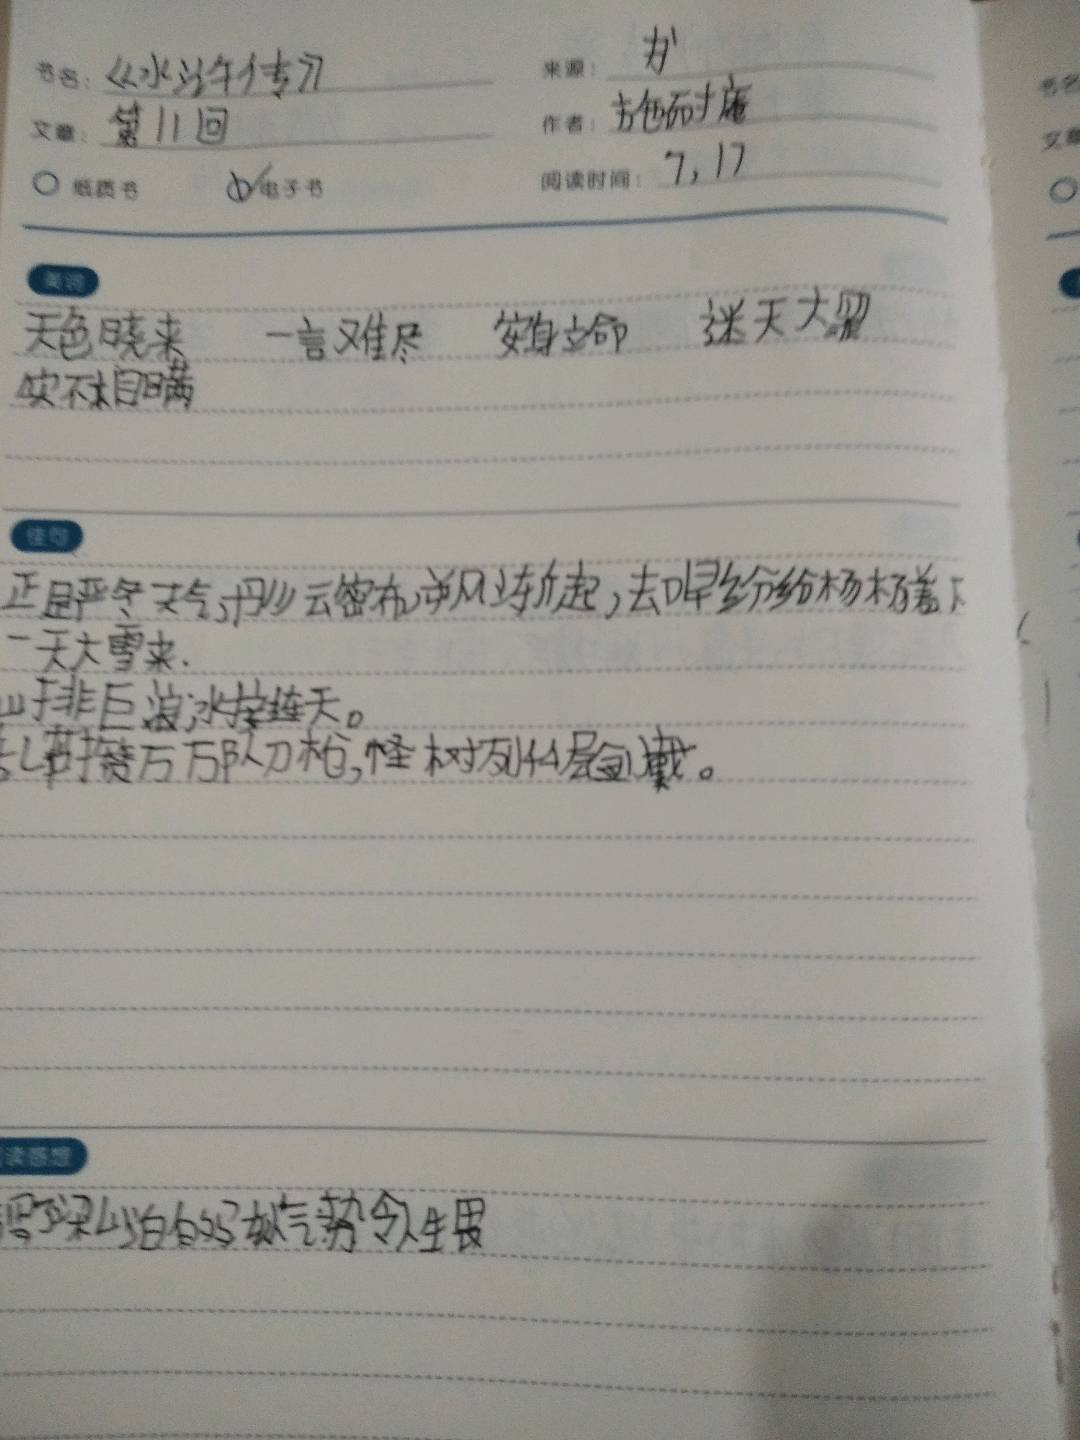 书名：《水浒传》 来源：
文章：第11回 作者：施耐庵
纸质书 电子书 阅读时间：7,17
美词
天色晚来 一言难尽 安身立命 迷天大罪
实不相瞒
佳句
正是严冬天气,彤云密布,朔风渐起,却早纷纷扬扬着下
一天大雪来.
山排巨浪,水接连天。
乱芦攒万万队刀枪,怪树列千层剑戟。
读感想
梁山泊的好汉气势令人生畏
书名
文章